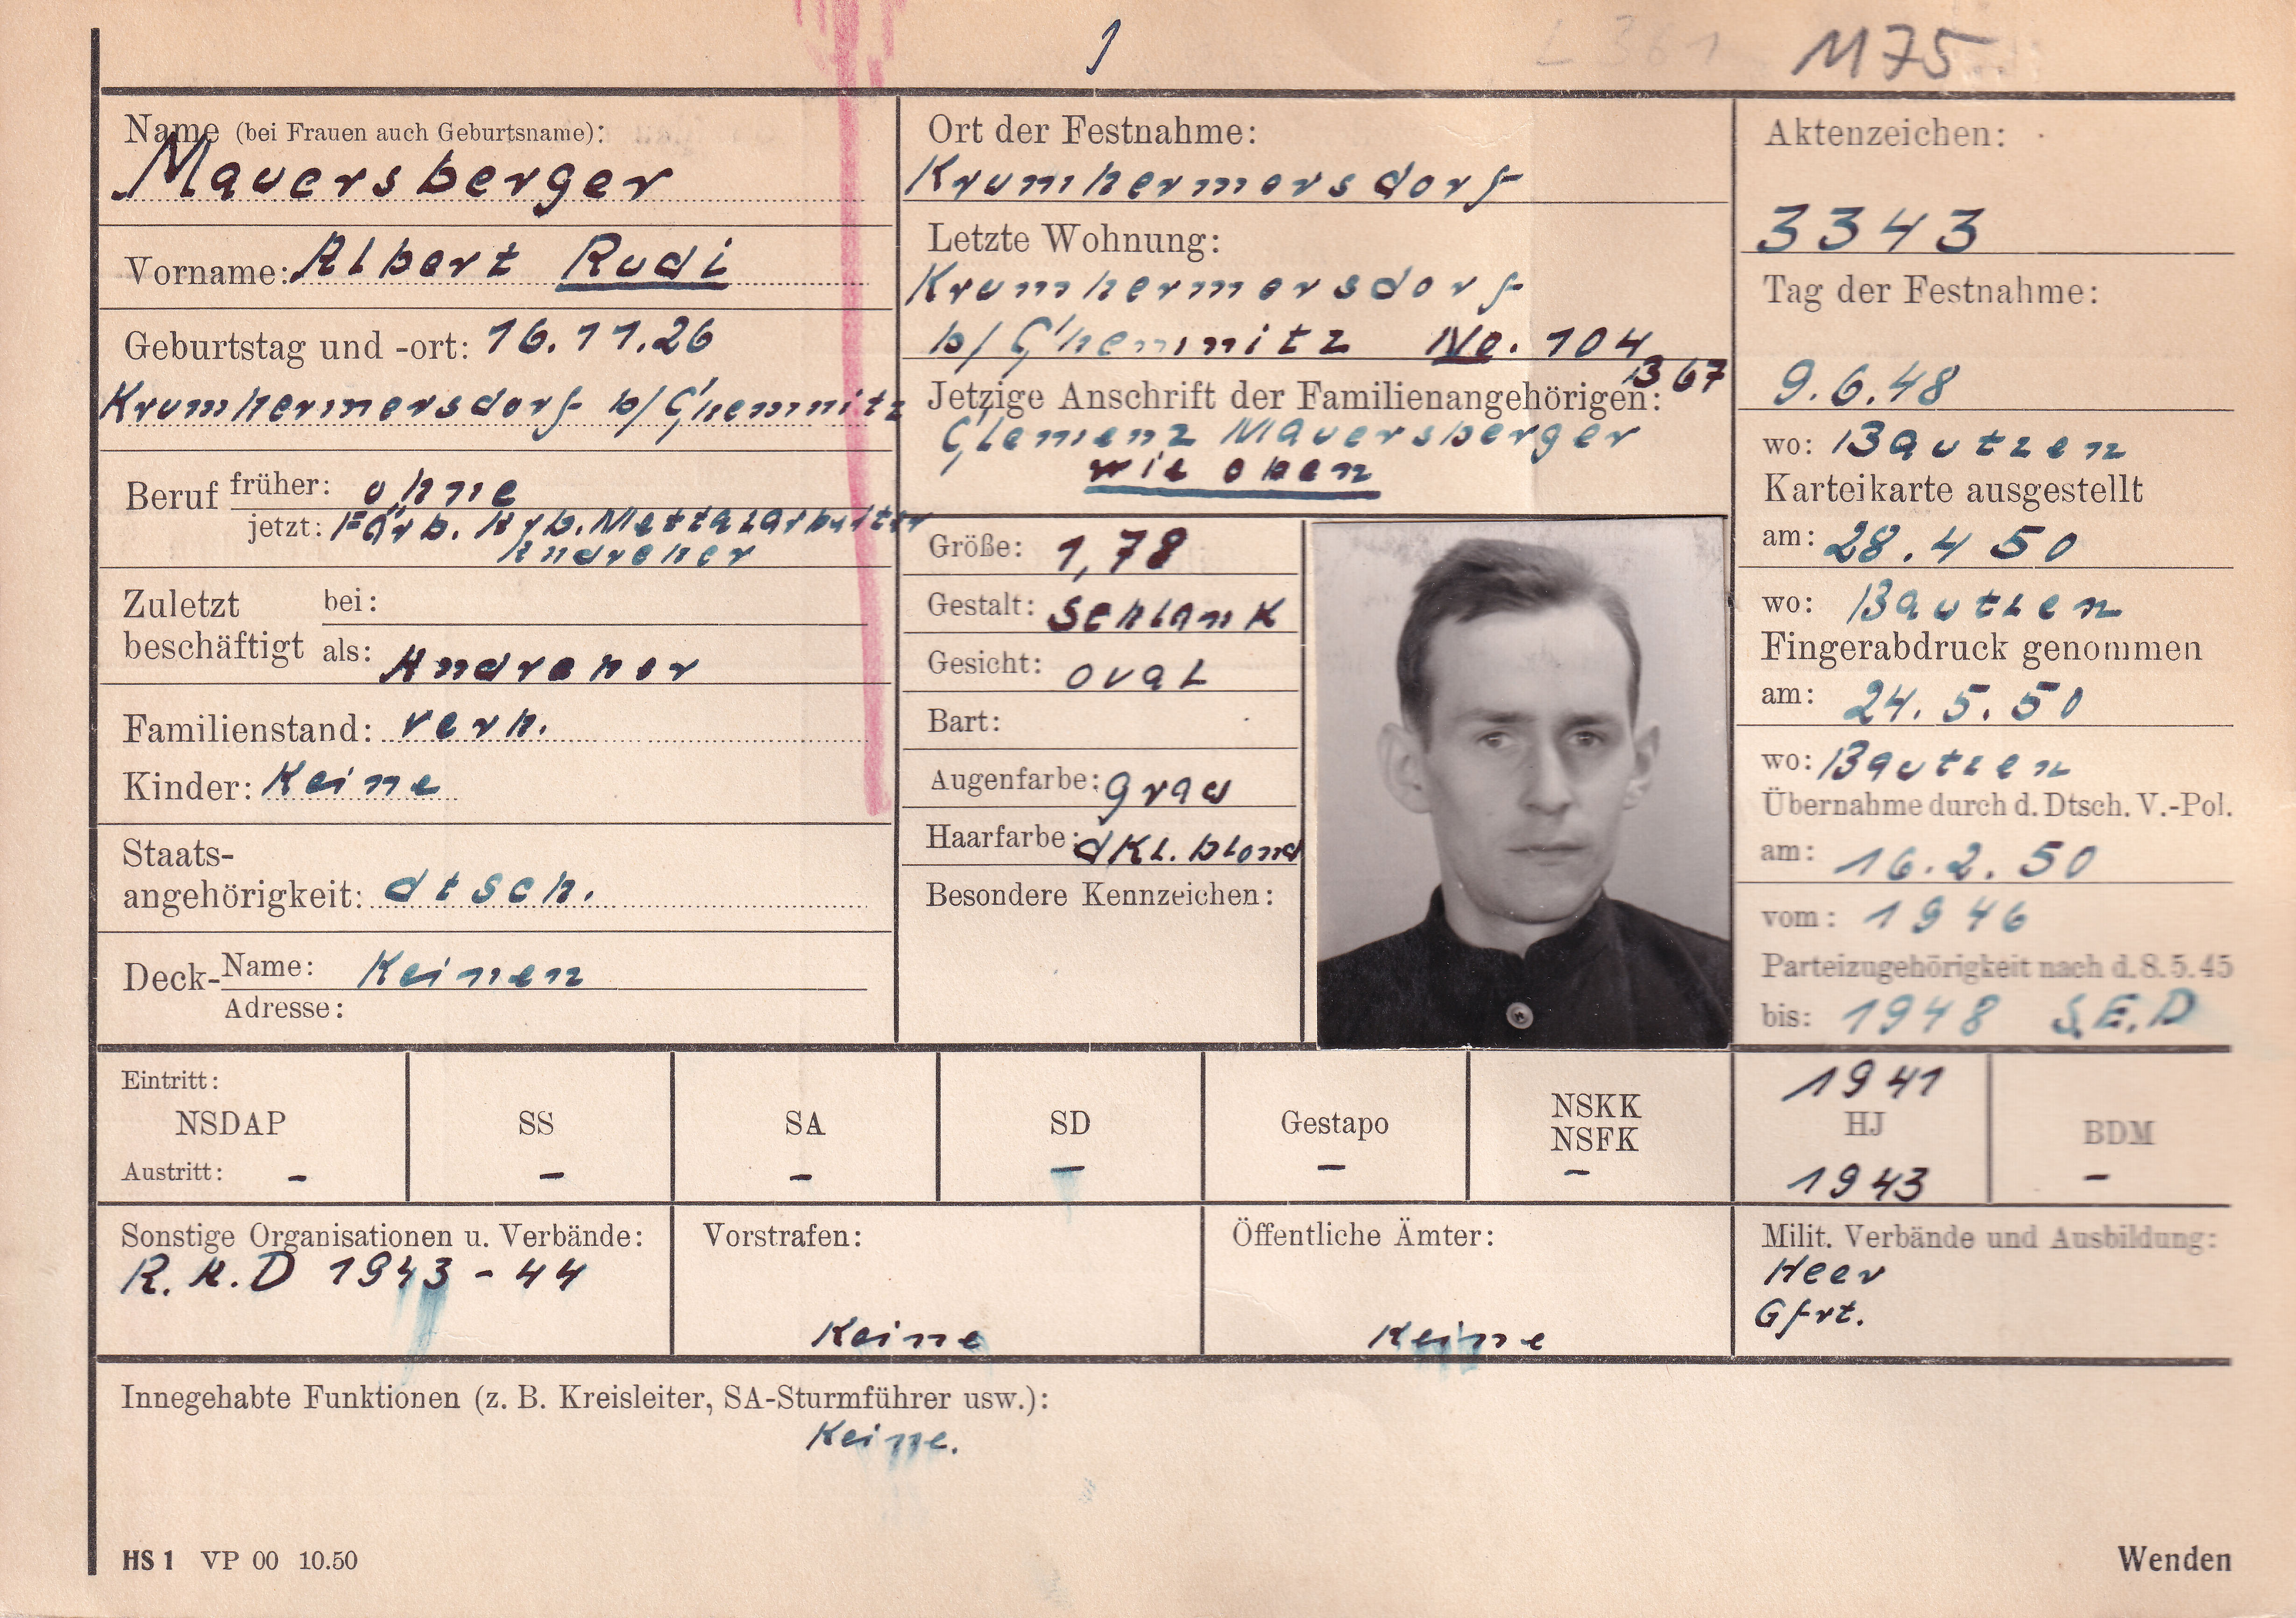 1
L 361
M75
Name (bei Frauen auch Geburtsname):
Mauersberger
Vorname: Albert Rudi
Geburtstag und -ort: 16.11.26
Krumhermersdorf b/ Chemnitz
Beruf früher: ohne
jetzt: Färb. Arb. Mettalarbeiter
Andreher
Zuletzt beschäftigt bei:
als: Andreher
Familienstand: verh.
Kinder: Keine
Staats-
angehörigkeit: dtsch.
Deck- Name: Keinen
Adresse:
Ort der Festnahme:
Krumhermersdorf
Letzte Wohnung:
Krumhermersdorf
b/ Chemnitz No. 104
B 67
Jetzige Anschrift der Familienangehörigen:
Clemenz Mauersberger
wie oben
Größe: 1,78
Gestalt: Schlank
Gesicht: oval
Bart:
Augenfarbe: grau
Haarfarbe: dkl. blond
Besondere Kennzeichen:
Aktenzeichen:
3343
Tag der Festnahme:
9.6.48
wo: Bautzen
Karteikarte ausgestellt
am: 28.4 50
wo: Bautzen
Fingerabdruck genommen
am: 24.5.50
wo: Bautzen
Übernahme durch d. Dtsch. V.-Pol.
am: 16.2.50
vom: 1946
Parteizugehörigkeit nach d. 8. 5. 45
bis: 1948 S.E.D
Eintritt:
NSDAP
Austritt: -
SS
-
SA
-
SD
-
Gestapo
-
NSKK
NSFK
-
1941
HJ
1943
BDM
-
Sonstige Organisationen u. Verbände:
R.A.D 1943 - 44
Vorstrafen:
Keine
Öffentliche Ämter:
Keine
Milit. Verbände und Ausbildung:
Heer
Gfrt.
Innegehabte Funktionen (z. B. Kreisleiter, SA-Sturmführer usw.):
Keine.
HS 1 VP 00 10.50
Wenden